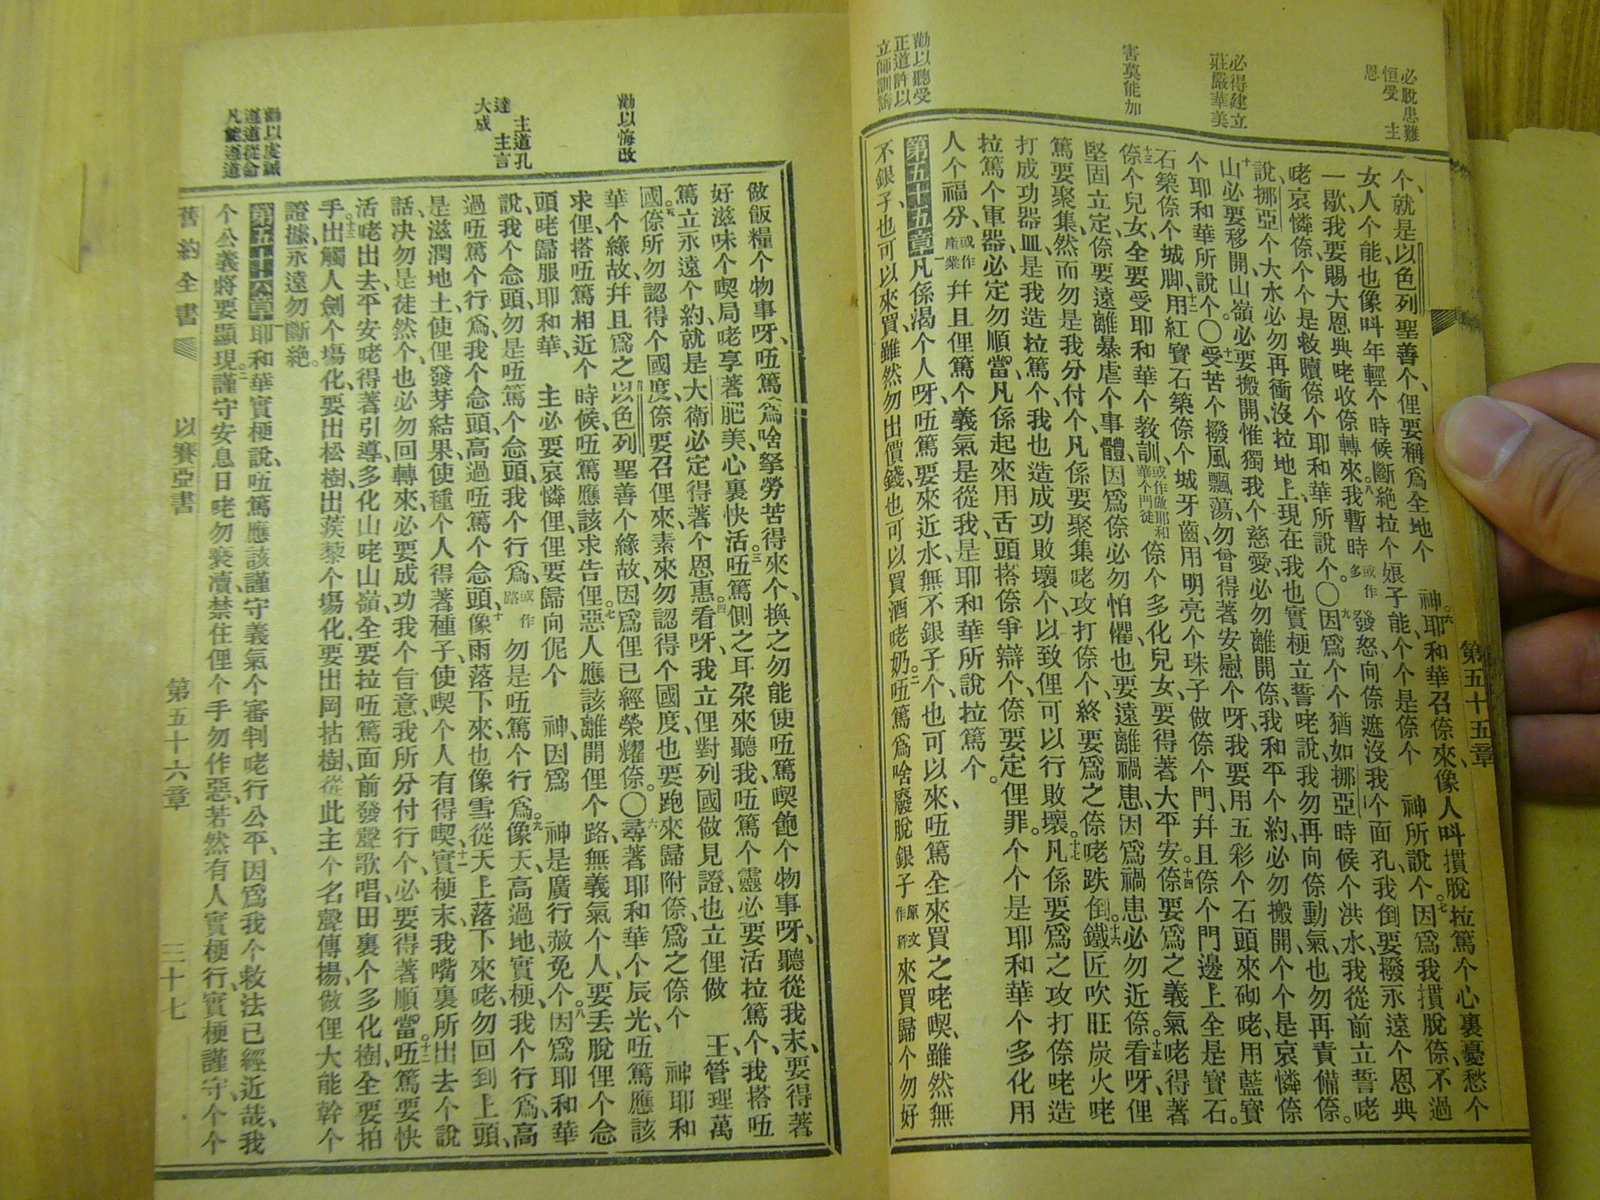 第五十五章
必脫患難
恒受　主
恩
必得建立
莊嚴華美
害莫能加
勸以聽受
正道許以
立師訓誨
个、就是以色列聖善个、俚要稱爲全地个　神。六耶和華召倷來、像人呌摜脫拉篤个心裏憂愁个
女人个能、也像呌年輕个時候斷絶拉个娘子能、个个是倷个　神所說个。七因爲我摜脫倷、不過
一歇、我要賜大恩典咾收倷轉來。八我暫時或作多發怒向倷遮沒我个面孔、我倒要撥永遠个恩典
咾哀憐倷、个个是救贖倷个耶和華所說个。〇九因爲个个猶如挪亞時候个洪水、我從前立誓咾
說、挪亞个大水必勿再衝沒拉地上、現在我也實梗立誓咾說、我勿再向倷動氣、也勿再責備倷。
十山必要移開、山嶺必要搬開、惟獨我个慈愛必勿離開倷、我和平个約必勿搬開、个个是哀憐倷
个耶和華所說个。〇十一受苦个、撥風飄蕩、勿曾得著安慰个呀、我要用五彩个石頭來砌咾、用藍寶
石築倷个城脚、十二用紅寶石築倷个城牙齒、用明亮个珠子做倷个門、幷且倷个門邊上全是寶石。
十三倷个兒女、全要受耶和華个教訓、或作做耶和華个門徒倷个多化兒女、要得著大平安。十四倷要爲之義氣咾得著
堅固立定、倷要遠離暴虐个事體、因爲倷必勿怕懼、也要遠離禍患、因爲禍患必勿近倷。十五看呀、俚
篤要聚集、然而勿是我分付个、凡係要聚集咾攻打倷个、終要爲之倷咾跌倒。十六鐵匠吹旺炭火咾
打成功器皿、是我造拉篤个、我也造成功敗壞个、以致俚可以行敗壞。十七凡係要爲之攻打倷咾造
拉篤个軍器、必定勿順當、凡係起來用舌頭搭倷爭辯个、倷要定俚罪。个个是耶和華个多化用
人个福分、或作產業幷且俚篤个義氣是從我、是耶和華所說拉篤个。
第五十五章凡係渴个人呀、㑚篤要來近水、無不銀子个、也可以來、㑚篤全來買之咾喫、雖然無
不銀子、也可以來買、雖然勿出價錢、也可以買酒咾奶。二㑚篤爲啥廢脫銀子原文作秤來買歸个勿好
勸以悔改
主道孔
達　主言
大成
勸以虔誠
遵道從命
凡能遵道
做飯糧个物事呀、㑚篤爲啥拏勞苦得來个、換之勿能使㑚篤喫飽个物事呀、聽從我末、要得著
好滋味个喫局咾享著肥美、心裏快活。三㑚篤側之耳朶來聽我、㑚篤个靈必要活拉篤个、我搭㑚
篤立永遠个約、就是大衛必定得著个恩惠。四看呀、我立俚對列國做見證、也立俚做　王、管理萬
國。五倷所勿認得个國度、倷要召俚來、素來勿認得个國度、也要跑來歸附倷、爲之倷个　神耶和
華个緣故、幷且爲之以色列聖善个緣故、因爲俚已經榮耀倷。〇六尋著耶和華个辰光、㑚篤應該
求俚、搭㑚篤相近个時候、㑚篤應該求告俚。七惡人應該離開俚个路、無義氣个人、要丢脫俚个念
頭咾歸服耶和華、　主必要哀憐俚、俚要歸向伲个　神、因爲　神是廣行赦免个。八因爲耶和華
說、我个念頭、勿是㑚篤个念頭、我个行爲、或作路勿是㑚篤个行爲。九像天、高過地、實梗、我个行爲、高
過㑚篤个行爲、我个念頭、高過㑚篤个念頭。十像雨落下來、也像雪從天上落下來咾、勿回到上頭、
是滋潤地土、使俚發芽結果、使種个人得著種子、使喫个人有得喫、十一實梗末、我嘴裏所出去个說
話、決勿是徒然个、也必勿回轉來、必要成功我个旨意、我所分付行个、必要得著順當。十二㑚篤要快
活咾出去、平安咾得著引導、多化山咾山嶺、全要拉㑚篤面前發聲歌唱、田裏个多化樹、全要拍
手。十三出觸人劍个塲化、要出松樹、出蒺藜个塲化、要出岡拈樹、從此主个名聲傳揚、做俚大能幹个
證據、永遠勿斷絕。
第五十六章耶和華實梗說、㑚篤應該謹守義氣个審判咾行公平、因爲我个救法已經近哉、我
个公義將要顯現。二謹守安息日咾勿褻凟、禁住俚个手勿作惡、若然有人實梗行、實梗謹守、个个
舊約全書　以賽亞書　第五十六章　三十七